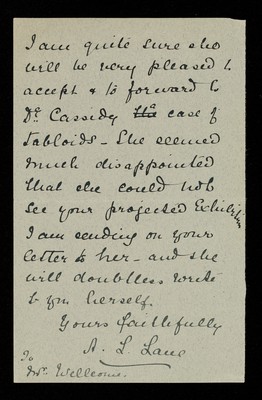 I am quite sure she
will be very pleased to
accept & to forward to
Dr. Cassidy the case of
Tabloids - She seemed
much disappointed
that she could not
see your projected Exhibition
I am sending on your
letter to her - and she
will doubtless write
to you herself.
Yours faithfully
A. L. Lane
To
Mr. Wellcome.